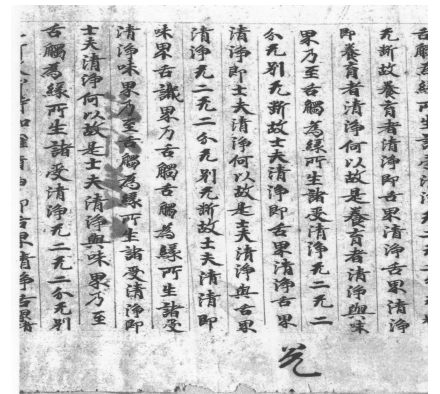 无斷故養育者清淨即舌界清淨舌界清淨
即養育者清淨何以故是養育者清淨與味
界乃至舌觸為緣所生諸受清淨无二无二
分无別无斷故士夫清淨即舌界清淨舌界
清淨即士夫清淨何以故是士夫清淨與舌界
清淨无二无二分无別无斷故士夫清清即
味界舌識界乃舌觸舌觸為緣所生諸受
清淨味界乃至舌觸為緣所生諸受清淨即
士夫清淨何以故是士夫清淨與味界乃至
舌觸為緣所生諸受清淨无二无二分无別
兑